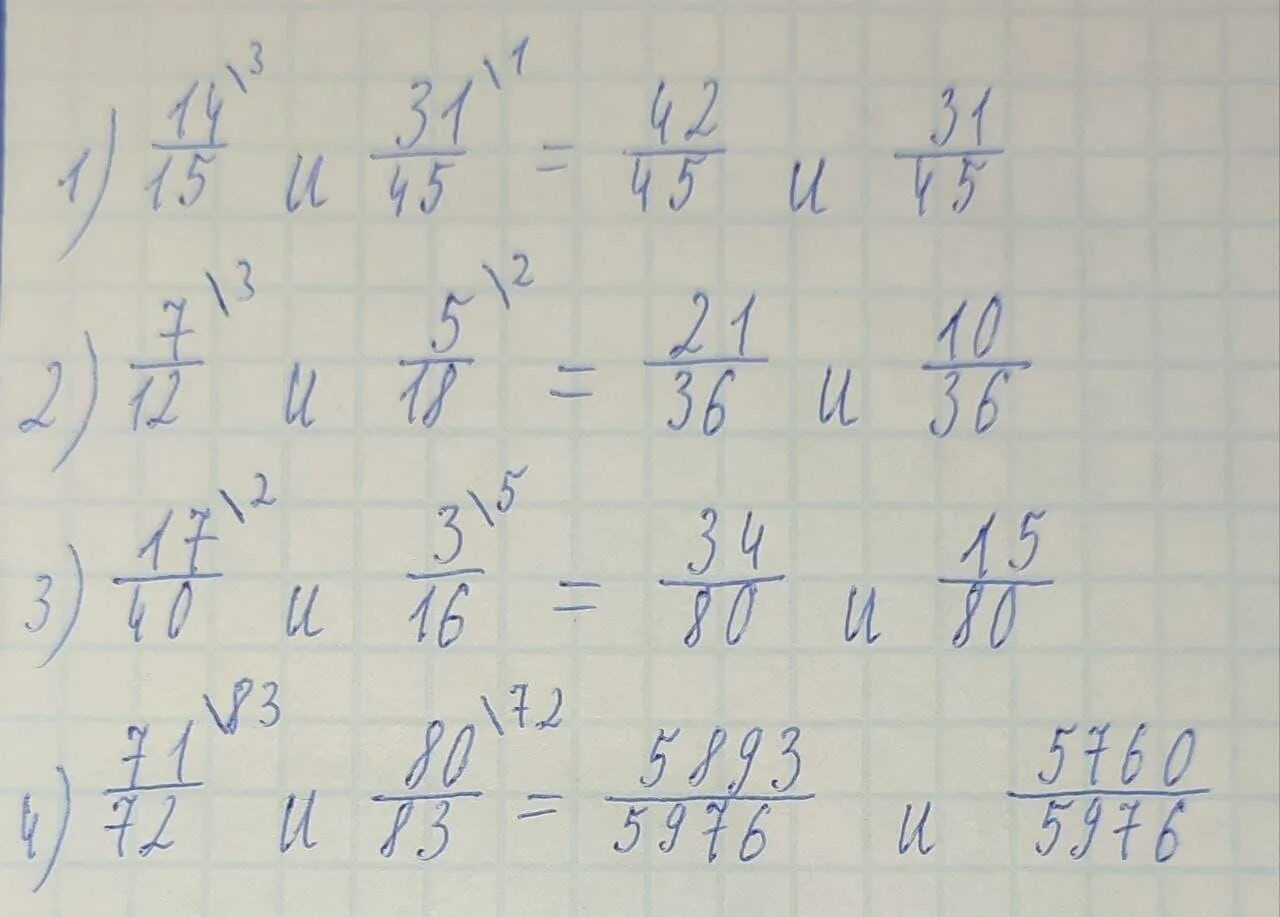 1) 14/15 \3 и 31/45 \1 = 42/45 и 31/45
2) 7/12 \3 и 5/18 \2 = 21/36 и 10/36
3) 17/40 \2 и 3/16 \5 = 34/80 и 15/80
4) 71/72 \83 и 80/83 \72 = 5893/5976 и 5760/5976